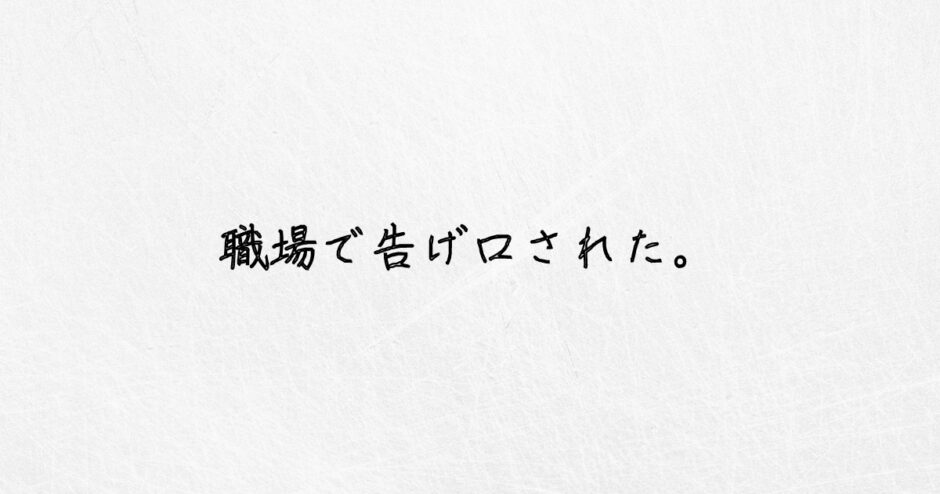 職場で告げ口された。